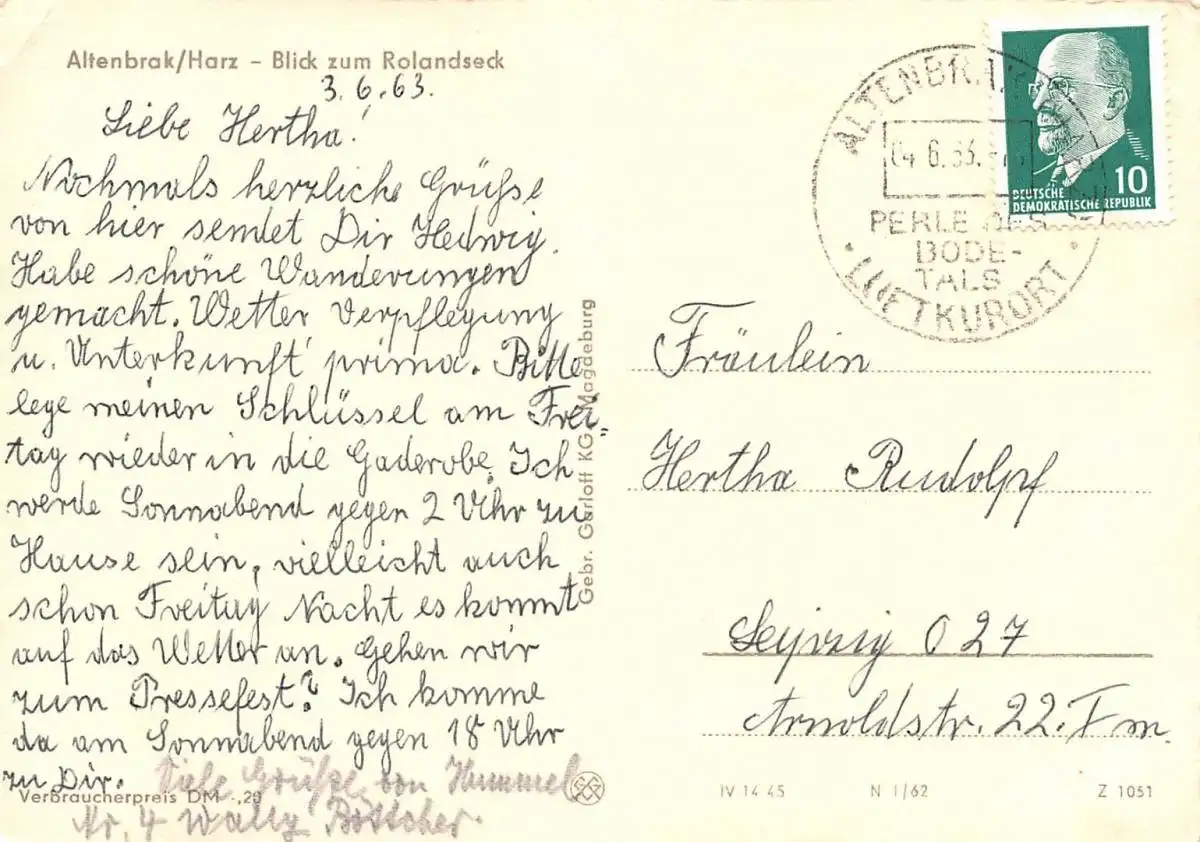 Altenbrak/Harz – Blick zum Rolandseck
3.6.63.
Liebe Hertha!
Nochmals herzliche Grüße
von hier sendet Dir Hedwig.
Habe schöne Wanderungen
gemacht. Wetter Verpflegung
u. Unterkunft prima. Bitte
lege meinen Schlüssel am Frei=
tag wieder in die Gaderobe. Ich
werde Sonnabend gegen 2 Uhr zu
Hause sein, vielleicht auch
schon Freitag Nacht es kommt
auf das Wetter an. Gehen wir
zum Pressefest? Ich komme
da am Sonnabend gegen 18 Uhr
zu Dir. Viele Grüße von Hummel
Nr. 4 Wally Böttcher.
Verbraucherpreis DM -,20
Gebr. Garloff KG Magdeburg
ALTENBRAK
04.6.63.
PERLE DES
BODE-
TALS
LUFTKURORT
10
DEUTSCHE
DEMOKRATISCHE REPUBLIK
Fräulein
Hertha Rudolpf
Leipzig O 27
Arnoldstr. 22. I m.
IV 14 45 N 1/62 Z 1051